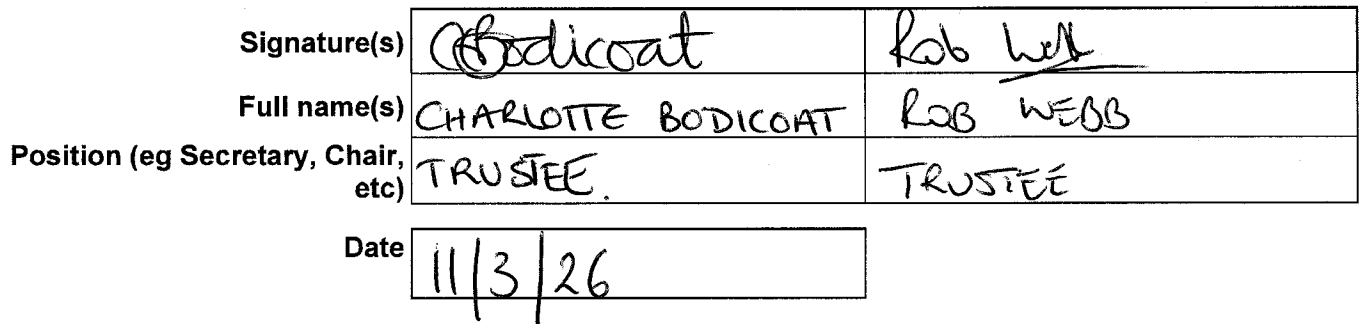 Signature(s) CBodicoat Rob Webb
Full name(s) CHARLOTTE BODICOAT ROB WEBB
Position (eg Secretary, Chair, etc) TRUSTEE. TRUSTEE
Date 11/3/26